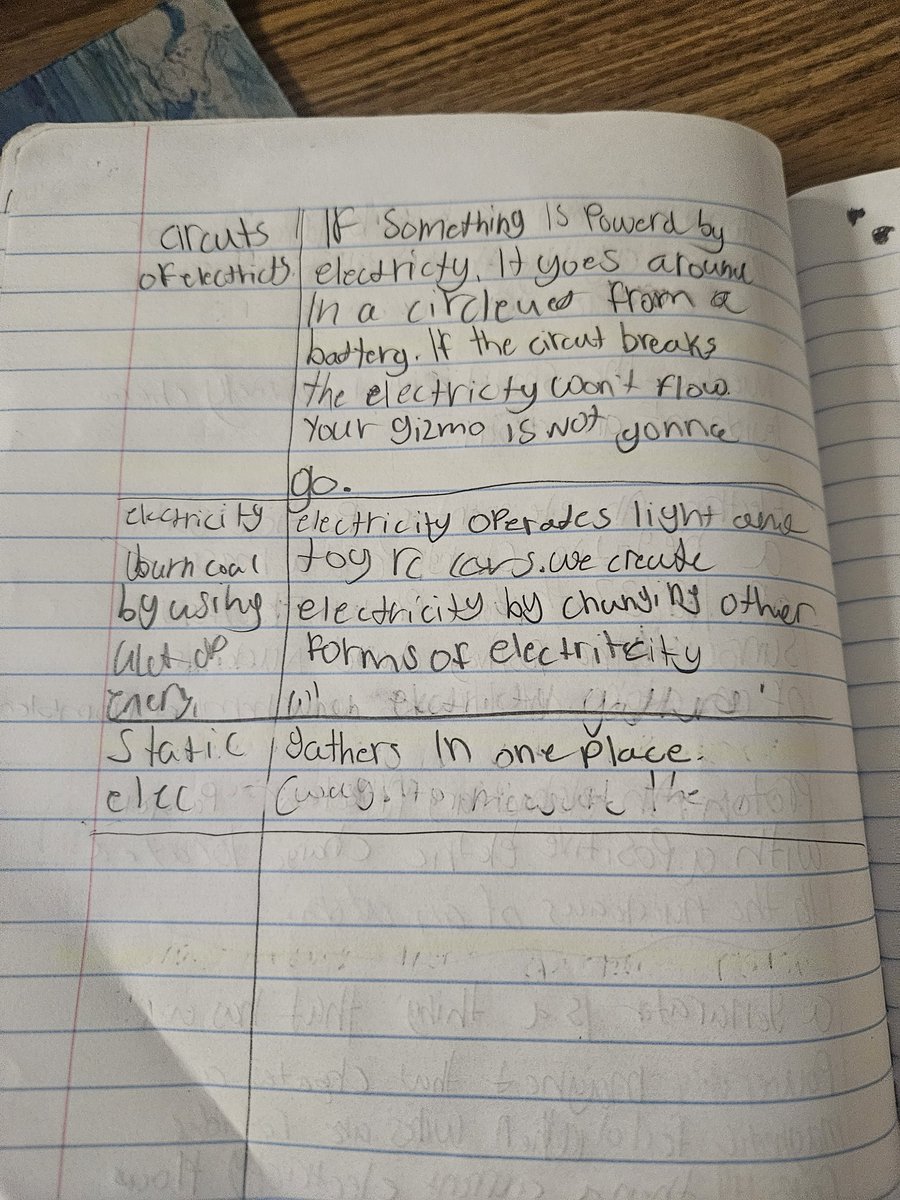 circuts
of electricts
If Something Is Powerd by
electricty. It goes around
In a circle from a
battery. If the circut breaks
the electricty won't flow.
Your gizmo is not gonna
go.
electricity
burn coal
by using
alot of
enery.
electricity operates light and
toy rc cars. we create
electricity by changing other
forms of electriteity
when
Static
elec
gathers In one place.
the